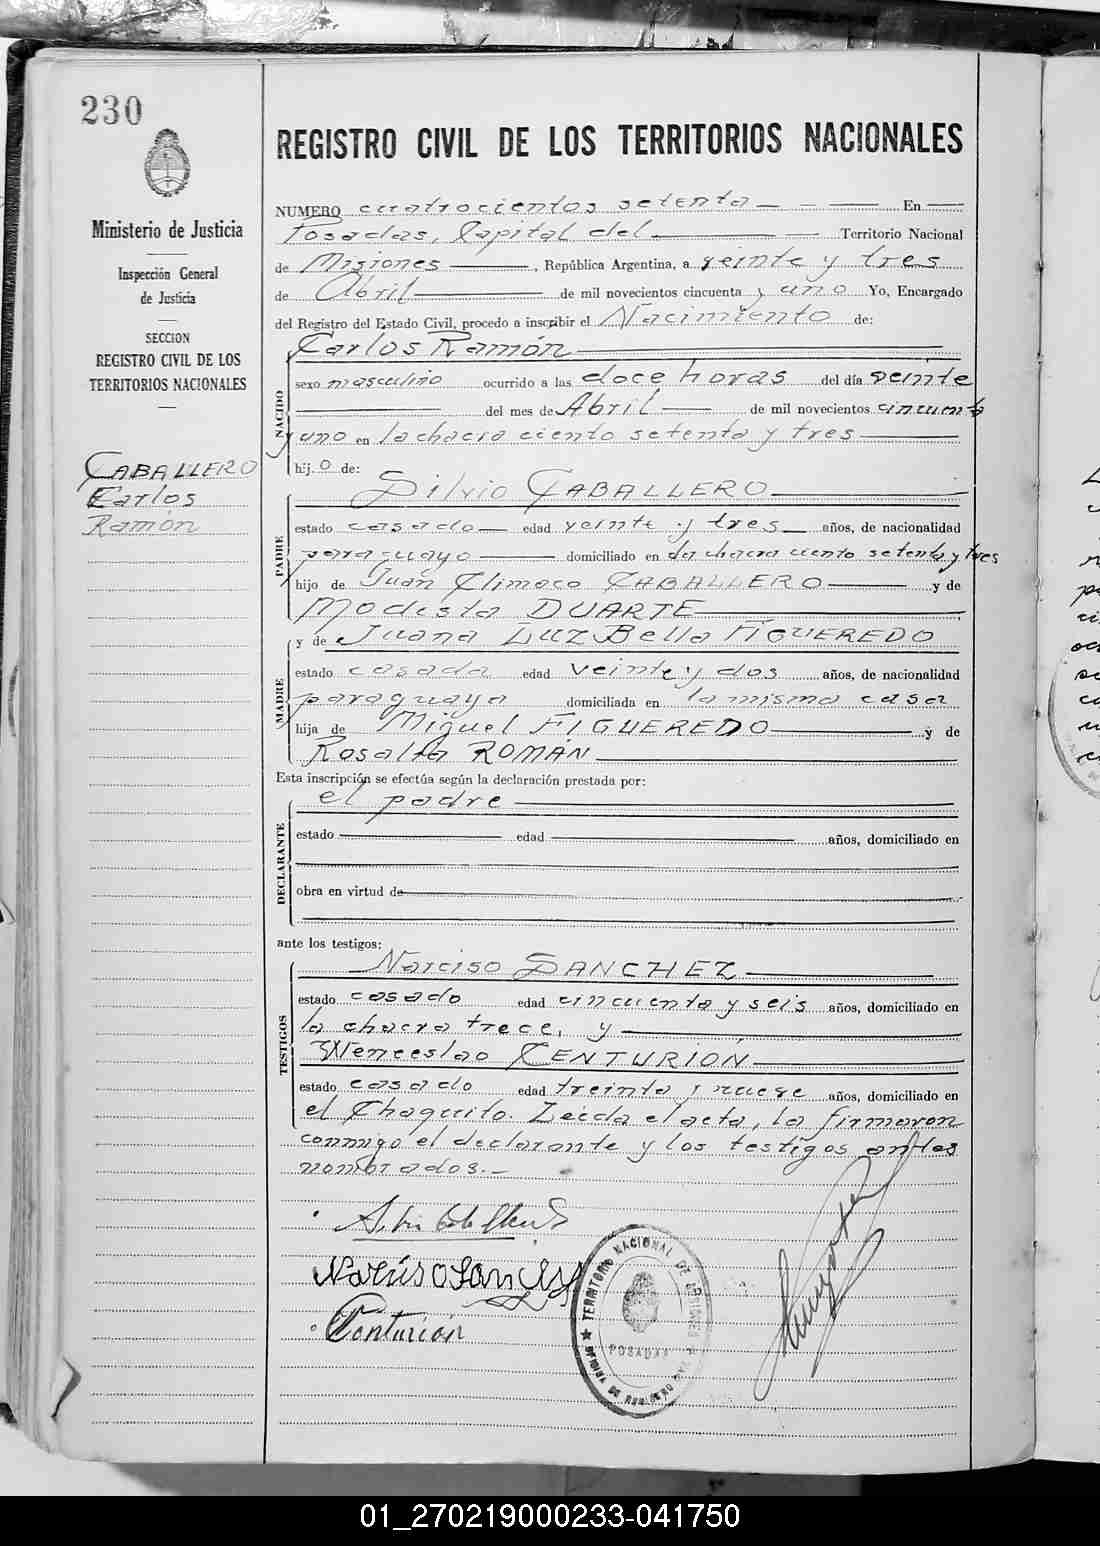 230
REGISTRO CIVIL DE LOS TERRITORIOS NACIONALES
Ministerio de Justicia
Inspección General
de Justicia
SECCION
REGISTRO CIVIL DE LOS
TERRITORIOS NACIONALES
CABALLERO
Carlos
Ramón
NUMERO cuatrocientos setenta En
Posadas, Capital del Territorio Nacional
de Misiones, República Argentina, a veinte y tres
de Abril de mil novecientos cincuenta y uno Yo, Encargado
del Registro del Estado Civil, procedo a inscribir el Nacimiento de:
NACIDO
Carlos Ramón
sexo masculino ocurrido a las doce horas del día veinte
del mes de Abril de mil novecientos cincuenta
y uno en la chacra ciento setenta y tres
hij.o de:
PADRE
Silvio CABALLERO
estado casado edad veinte y tres años, de nacionalidad
paraguayo domiciliado en la chacra ciento setenta y tres
hijo de Juan Climaco CABALLERO y de
Modesta DUARTE
MADRE
y de Juana Luz Bella FIGUEREDO
estado casada edad veinte y dos años, de nacionalidad
paraguaya domiciliada en la misma casa
hija de Miguel FIGUEREDO y de
Rosalía ROMÁN
Esta inscripción se efectúa según la declaración prestada por:
DECLARANTE
el padre
estado edad años, domiciliado en
obra en virtud de
ante los testigos:
TESTIGOS
Narciso SANCHEZ
estado casado edad cincuenta y seis años, domiciliado en
la chacra trece, y
Wenceslao CENTURION
estado casado edad treinta y nueve años, domiciliado en
el Chaquito. Leída el acta, la firmaron
conmigo el declarante y los testigos antes
nombrados.-
Narciso Sanchez
Centurion
TERRITORIO NACIONAL DE MISIONES
POSADAS
OFICINA DE REGISTRO DEL
01_270219000233-041750